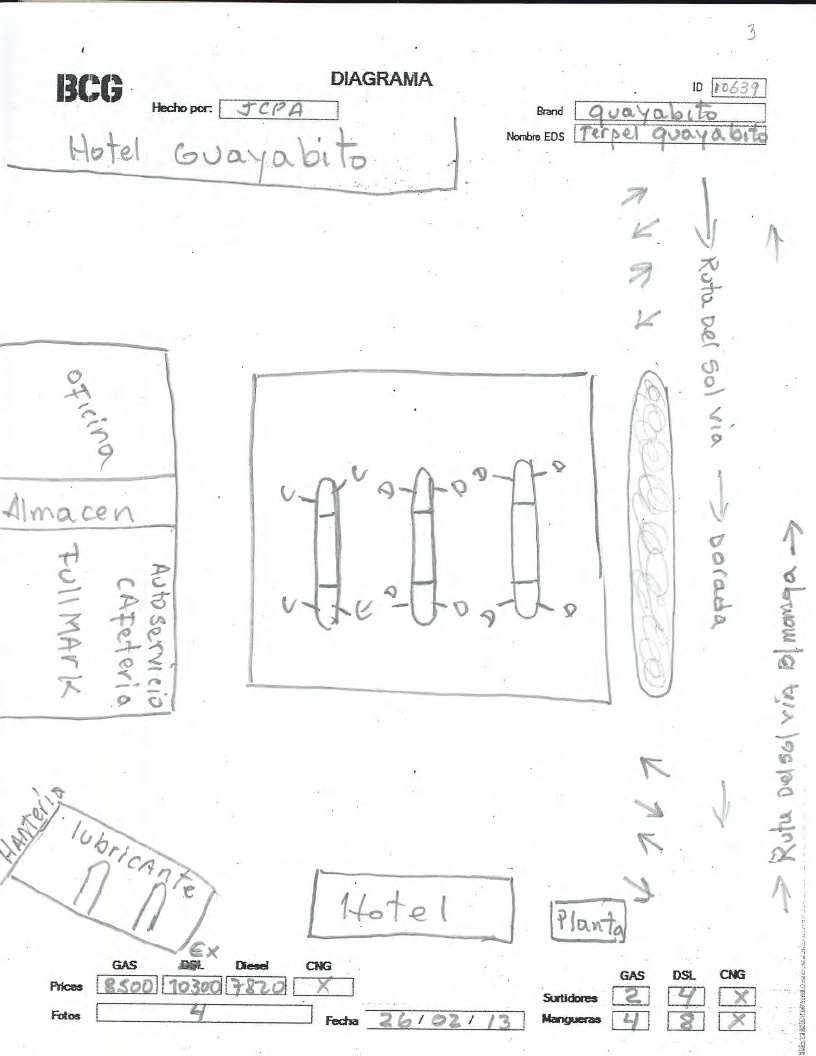 3
BCG
DIAGRAMA
ID 10639
Hecho por: JCPA
Brand guayabito
Nombre EDS Terpel guayabito
Hotel Guayabito
Ruta Del Sol via → Dorada
→ Ruta Del sol vía B/manga →
oficina
Almacen
Full MArk
Autoservicio
CAfeteria
U U D D D D
U E D D D D
llAnteria
lubricAnte
Hotel
Planta
EX
GAS DSL Diesel CNG
Prices 8500 10300 7820 X
Fotos 4
Fecha 26/02/13
GAS DSL CNG
Surtidores 2 4 X
Mangueras 4 8 X